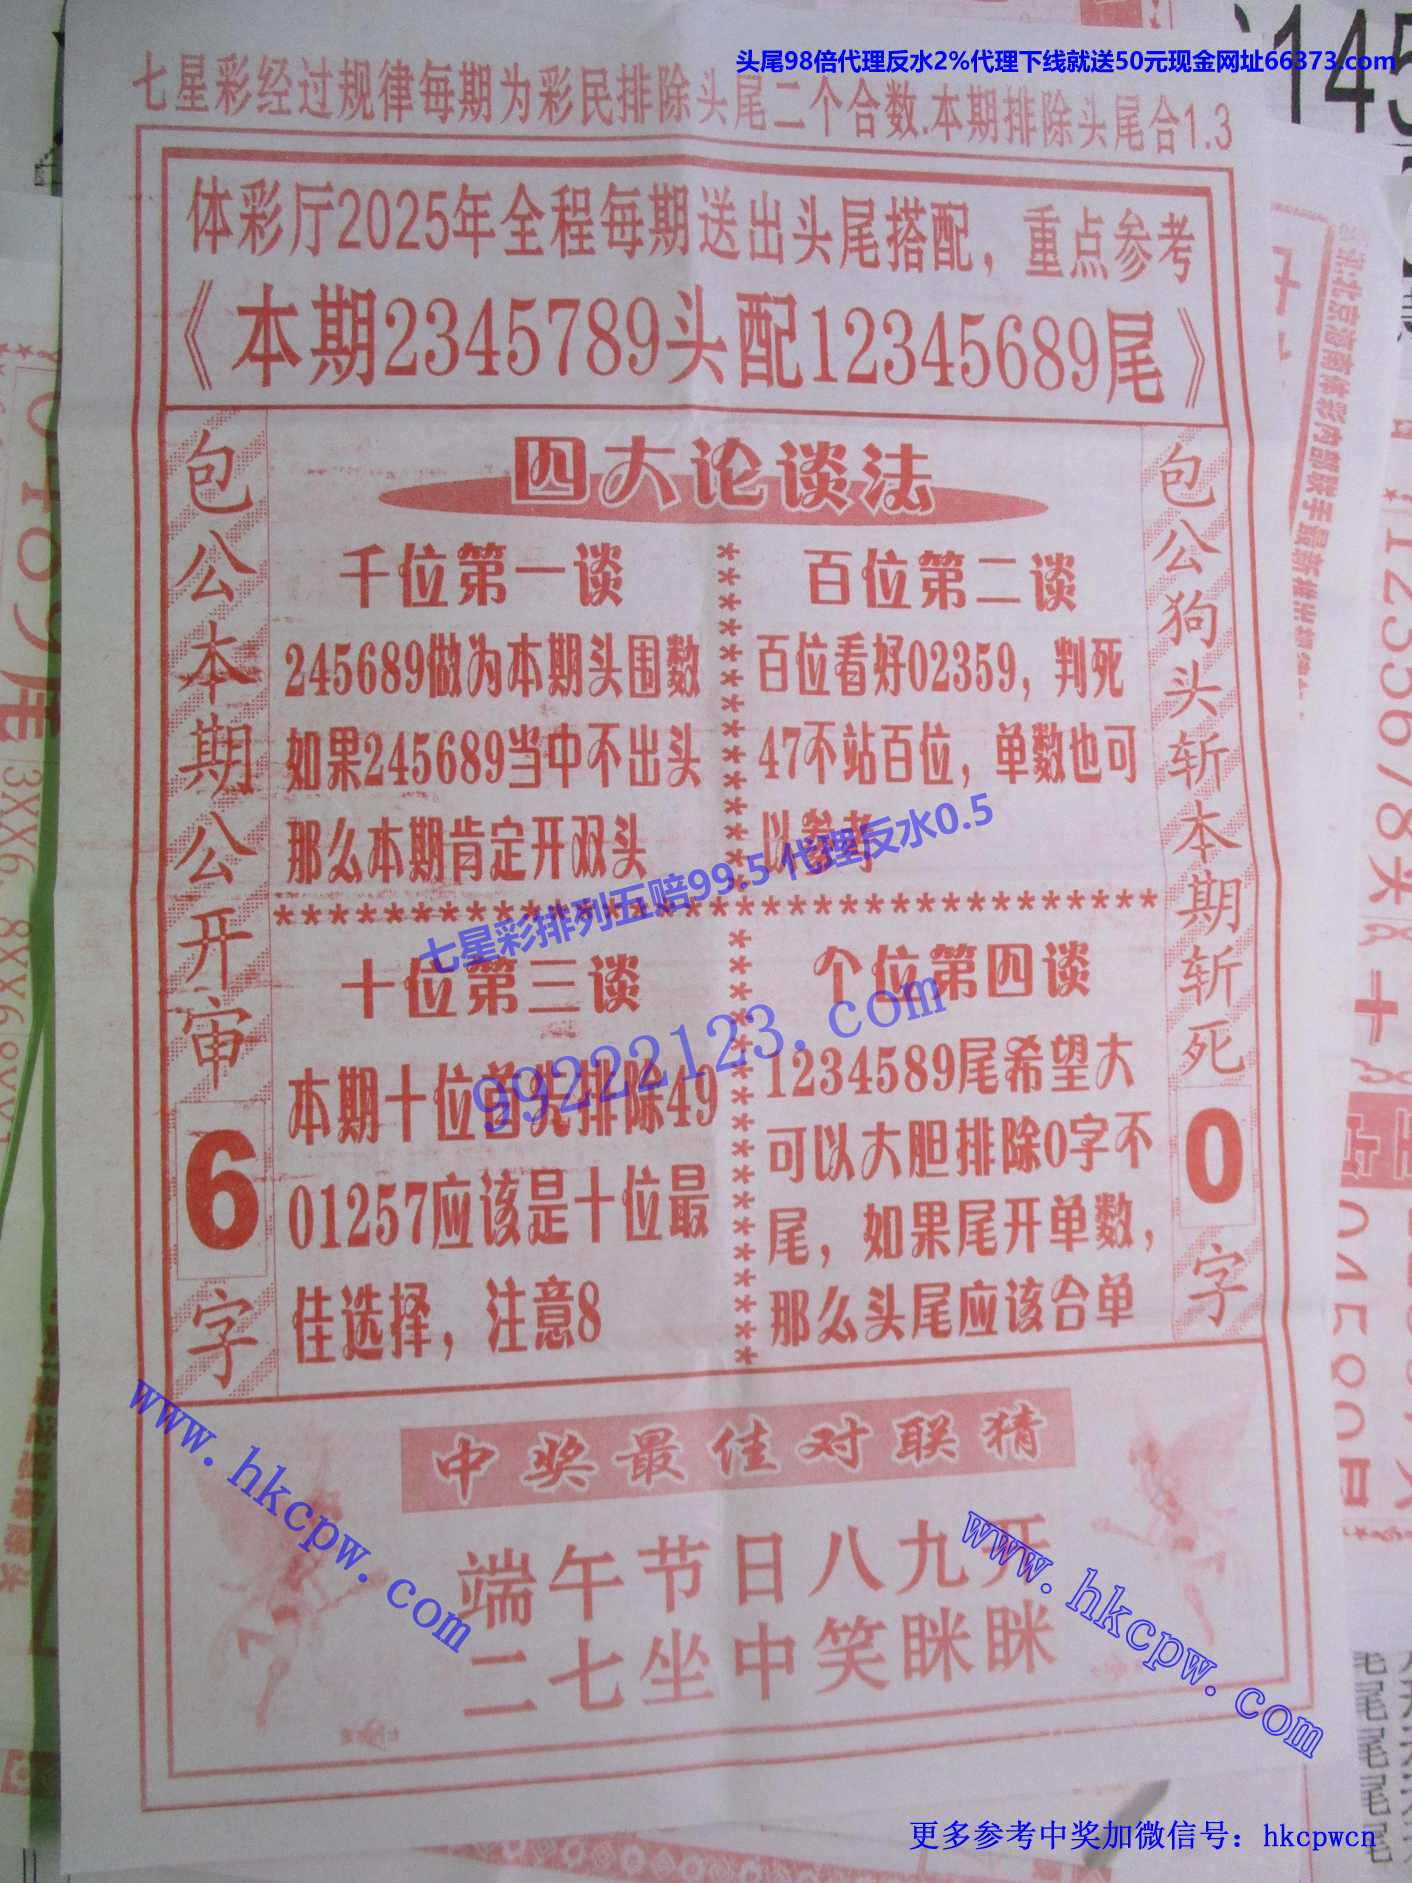 头尾98倍代理反水2%代理下线就送50元现金网址66373.com
七星彩经过规律每期为彩民排除头尾二个合数.本期排除头尾合1.3
体彩厅2025年全程每期送出头尾搭配，重点参考
《本期2345789头配12345689尾》
包公本期公开审6字
四大论谈法
千位第一谈
245689做为本期头围数
如果245689当中不出头
那么本期肯定开双头
百位第二谈
百位看好02359，判死
47不站百位，单数也可
以参考
七星彩排列五赔99.5 代理反水0.5
99222123.com
十位第三谈
本期十位首先排除49
01257应该是十位最
佳选择，注意8
个位第四谈
1234589尾希望大
可以大胆排除0字不
尾，如果尾开单数，
那么头尾应该合单
包公狗头斩本期斩死0字
中奖最佳对联猜
端午节日八九开
二七坐中笑眯眯
www.hkcpw.com
www.hkcpw.com
更多参考中奖加微信号：hkcpwcn